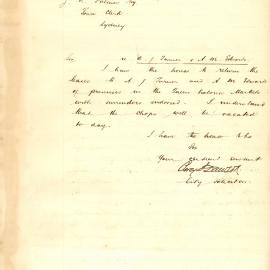 Town Clerk
Sydney
Sir
I have the honor to return the
Leases to A. J. Turner and A. M. Edwards
of premises in the Queen Victoria Markets
with surrenders endorsed. I understand
that the shops will be vacated
to day.
I have the honor to be
Sir
Your obedient servant
City Solicitor